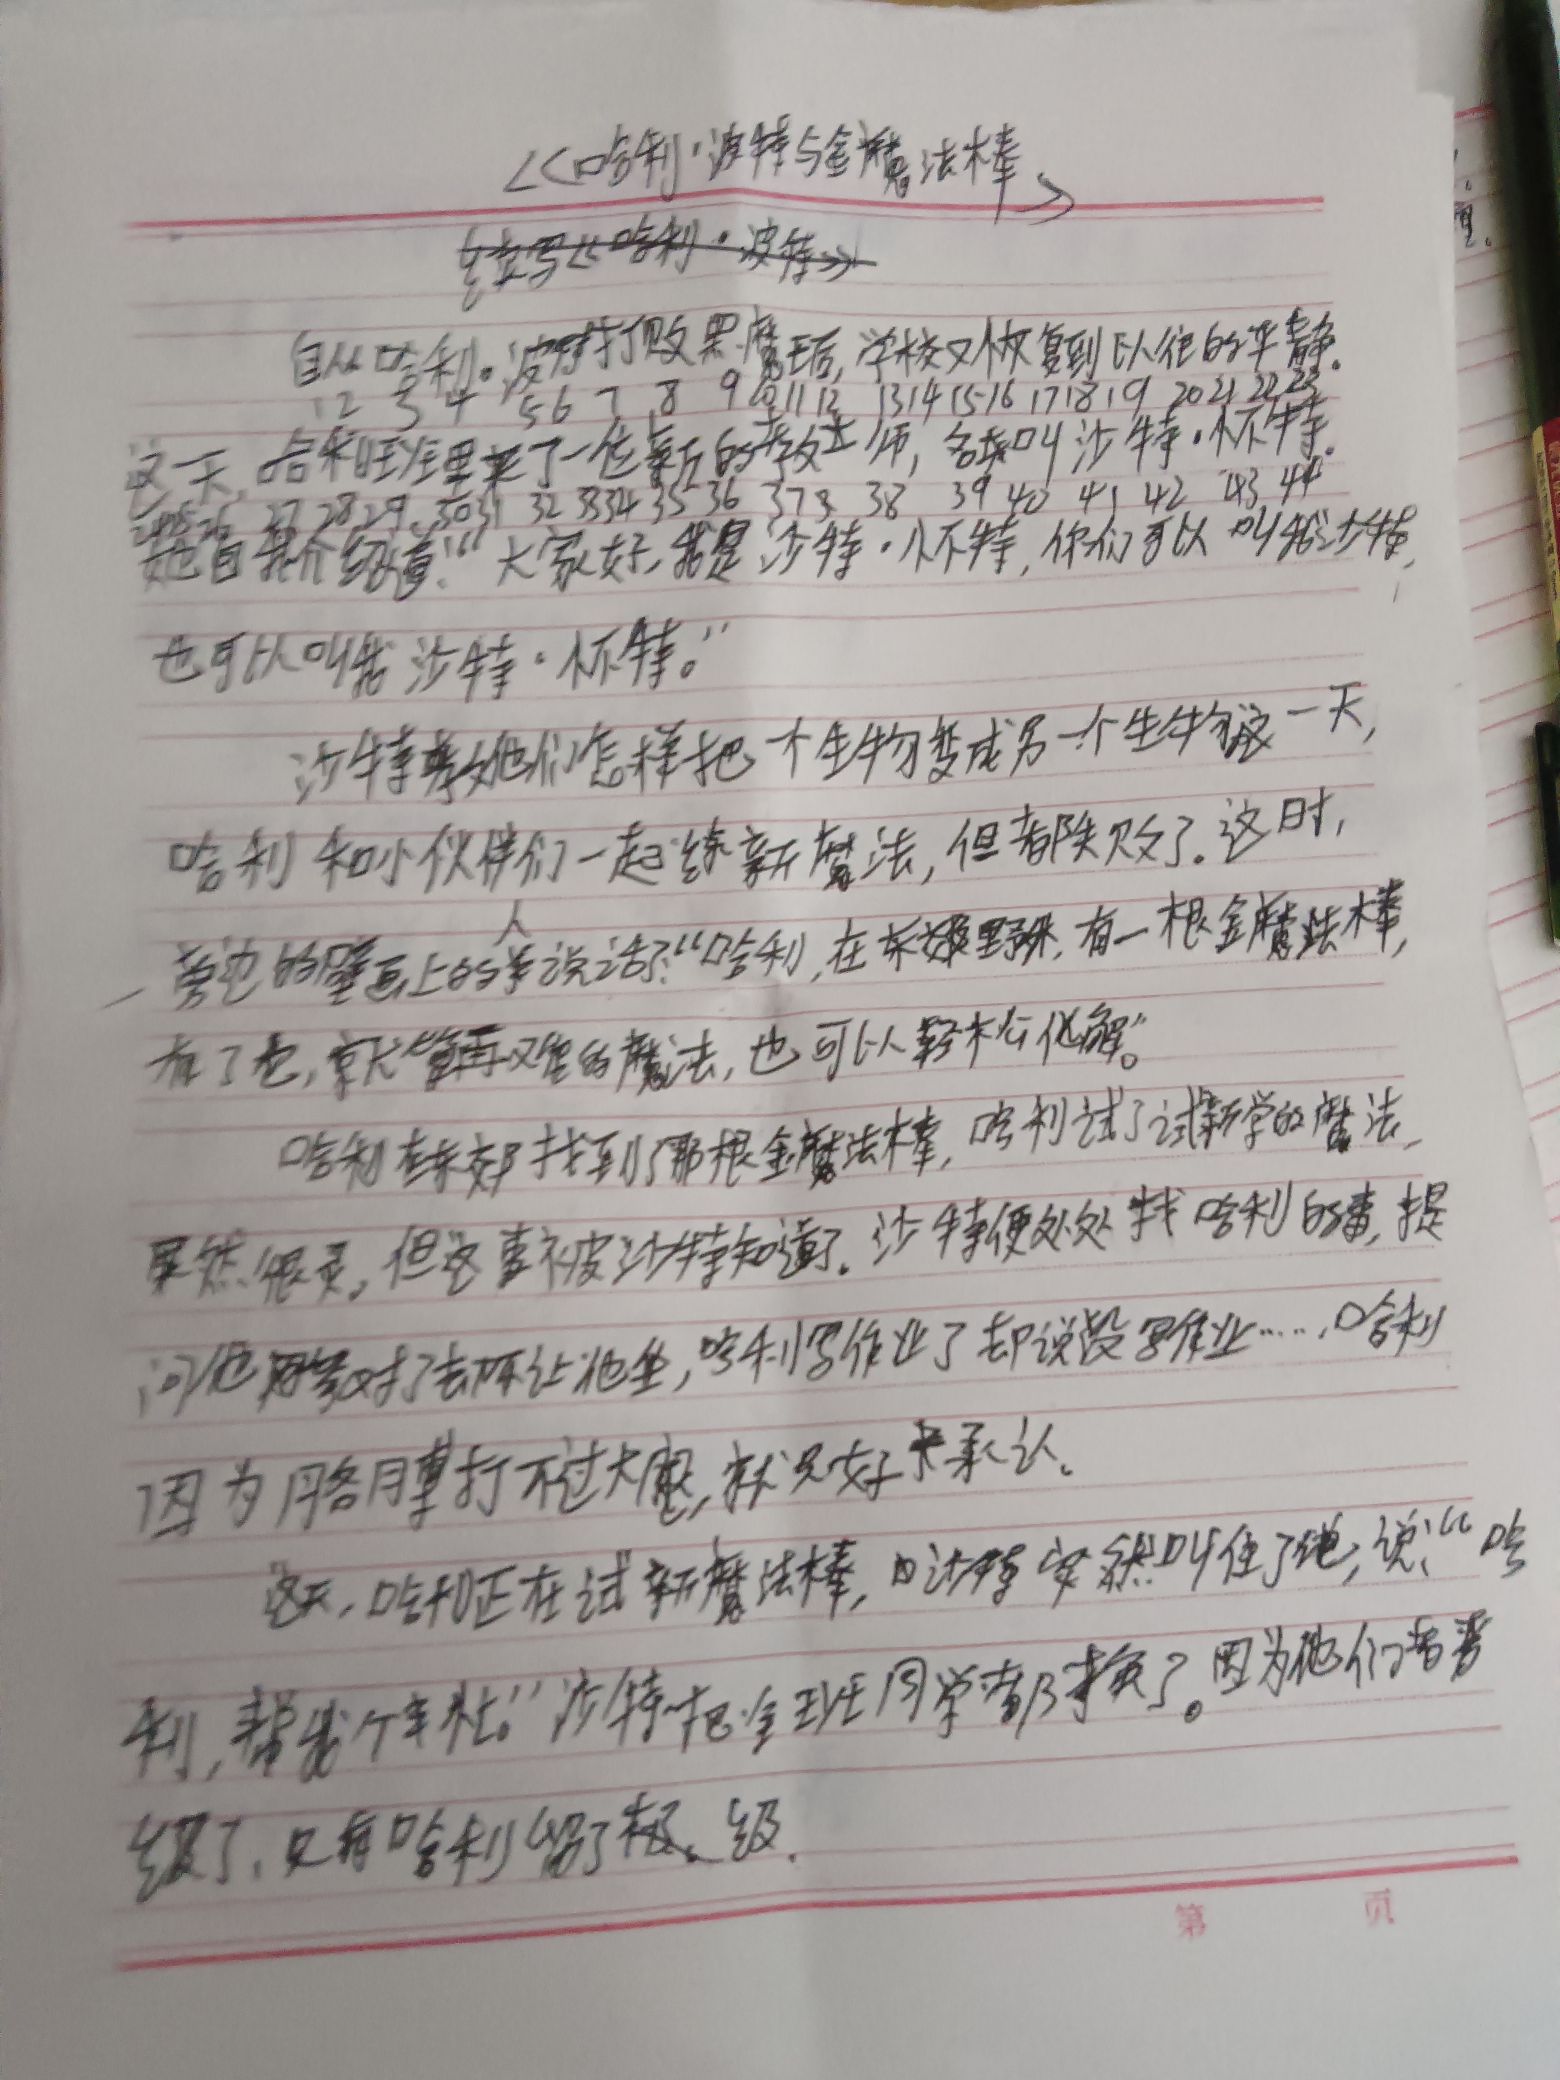 《哈利·波特与金魔法棒》
续写《哈利·波特》
自从哈利·波特打败黑魔王后,学校又恢复到以往的平静。
1 2 3 4 5 6 7 8 9 10 11 12 13 14 15 16 17 18 19 20 21 22 23
这一天,哈利班里来了一位新的教师,名叫沙特·怀特。
24 25 26 27 28 29 30 31 32 33 34 35 36 37 38 39 40 41 42 43 44
她自我介绍道:“大家好,我是沙特·怀特,你们可以叫我沙特,
也可以叫我沙特·怀特。”
沙特教他们怎样把一个生物变成另一个生物这一天,
哈利和小伙伴们一起练新魔法,但都失败了。这时,
旁边的壁画上的人说话了:“哈利,在东郊野外,有一根金魔法棒,
有了它,就算再难的魔法,也可以轻松化解。”
哈利在东郊找到了那根金魔法棒,哈利试了试新学的魔法,
果然很灵。但这事被沙特知道了。沙特便处处找哈利的事,提
问他回答对了却不让他坐,哈利写作业了却说没写作业……,哈利
因为胳膊打不过大腿,就只好承认。
这天,哈利正在试新魔法棒,沙特突然叫住了他,说:“哈
利,帮我个忙。”沙特把全班同学都换了。因为他们都晋
级了,只有哈利留了级。
第 页